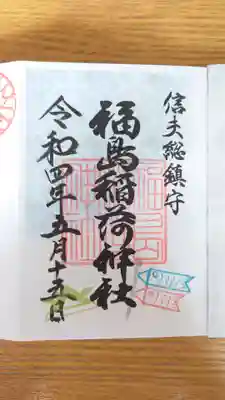 信夫総鎮守
福島稲荷神社
令和四年五月十五日